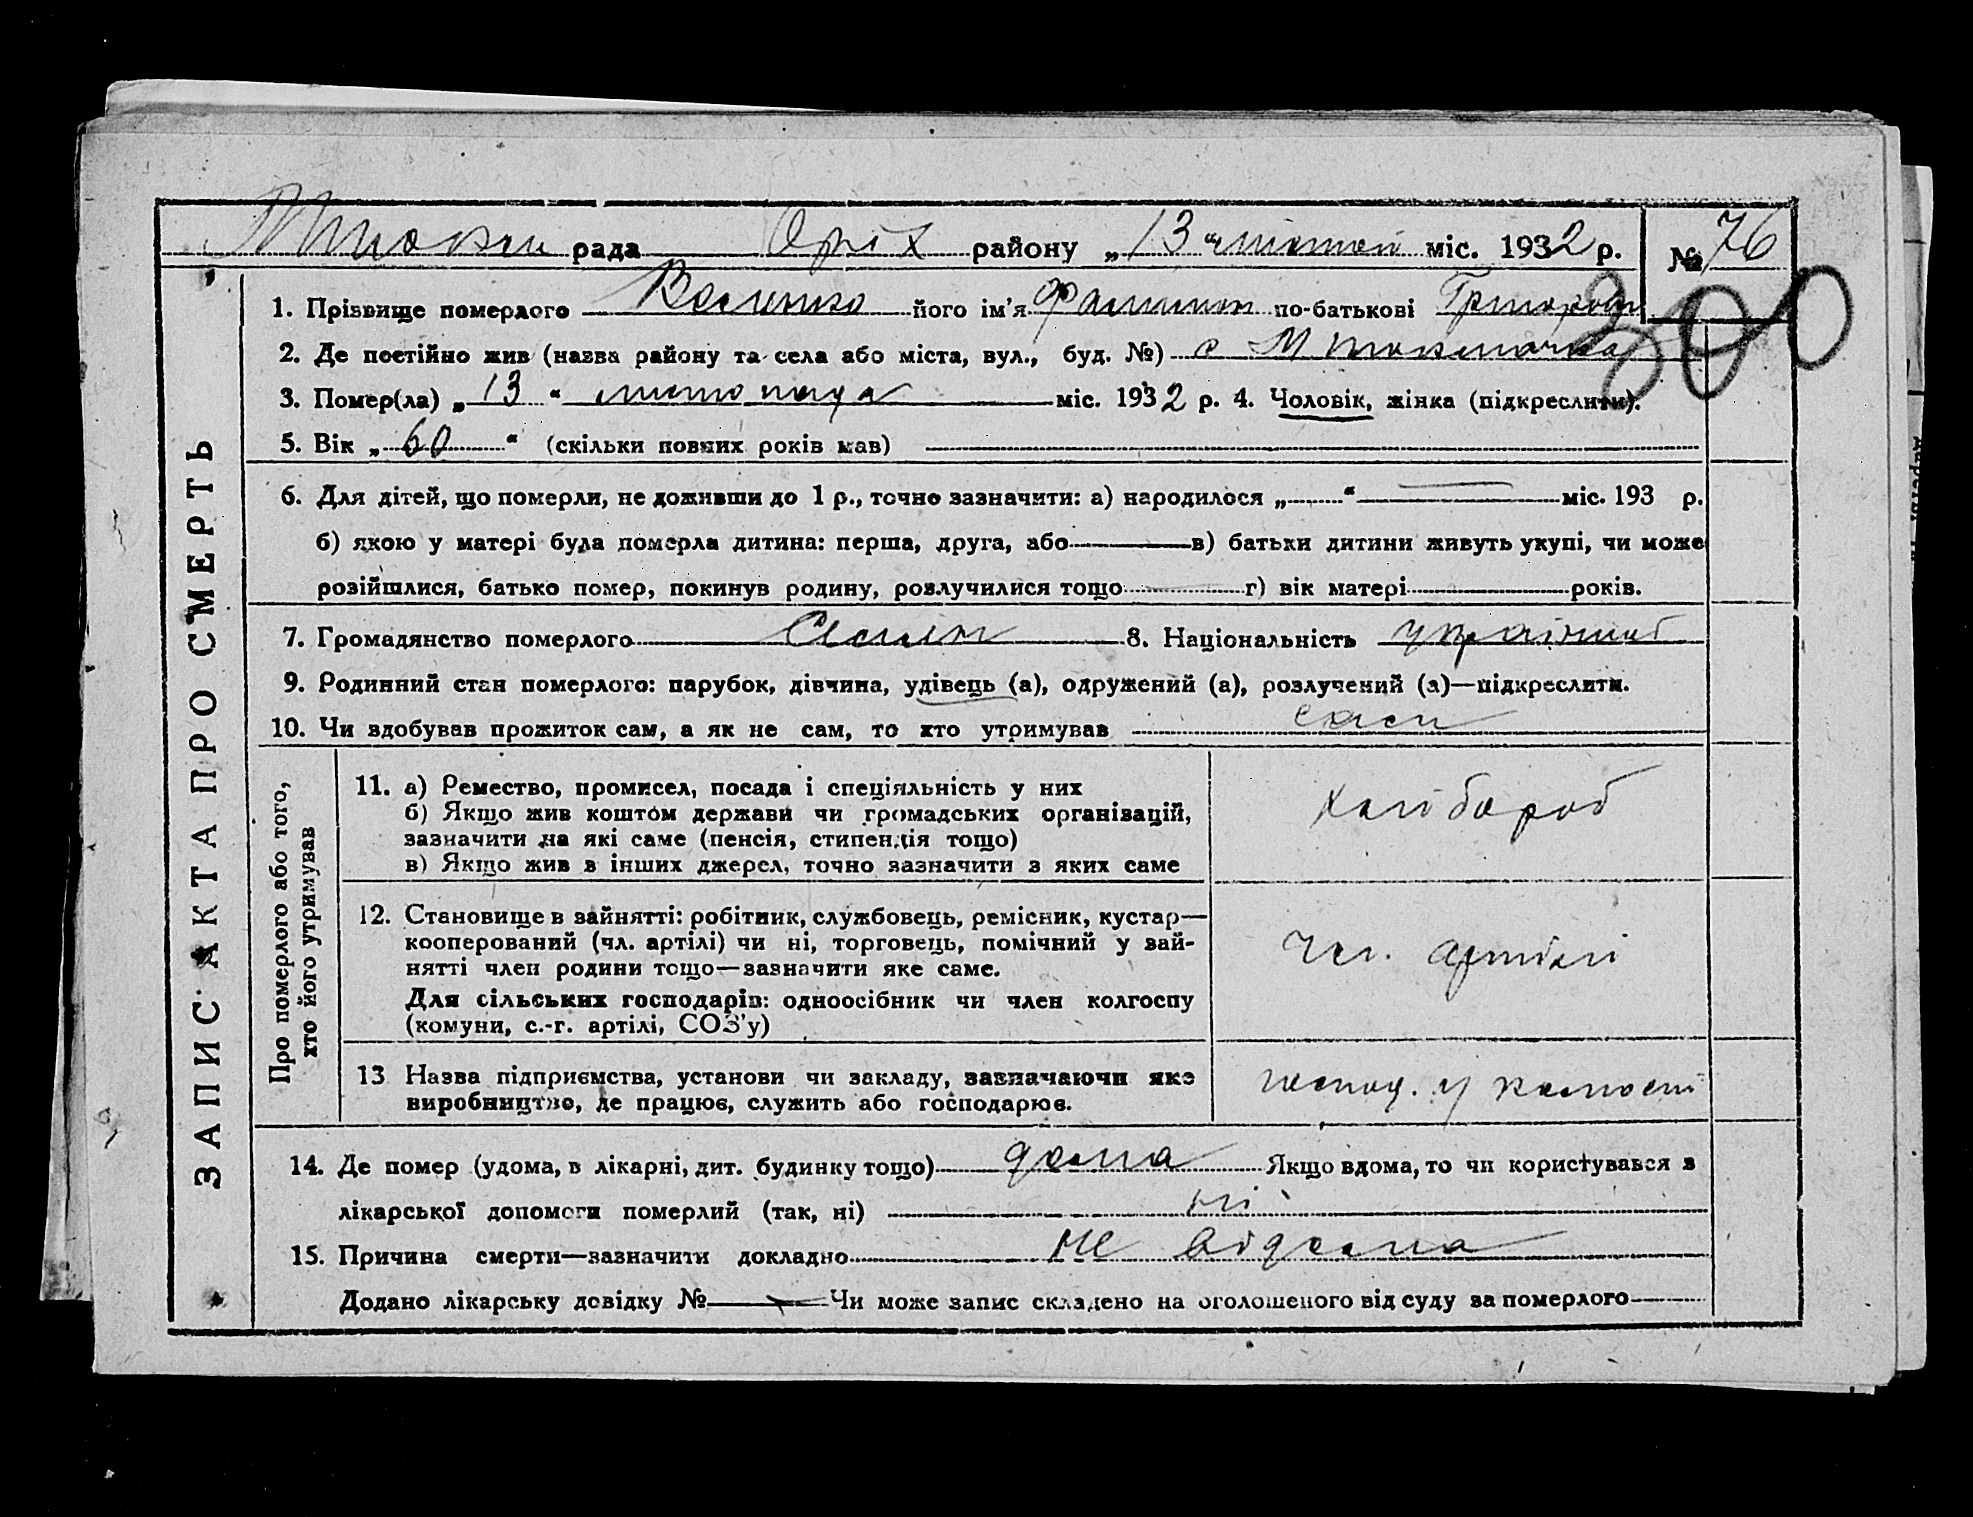 рада Оріх району „13“ міс. 1932 р. № 76
1. Прізвище померлого його ім'я по-батькові
300
2. Де постійно жив (назва району та села або міста, вул., буд. №) с М Токмачка
3. Помер(ла) „13“ листопада міс. 1932 р. 4. Чоловік, жінка (підкреслити).
5. Вік „60“ (скільки повних років мав)
6. Для дітей, що померли, не доживши до 1 р., точно зазначити: а) народилося „ “ міс. 193 р.
б) якою у матері була померла дитина: перша, друга, або в) батьки дитини живуть укупі, чи може
розійшлися, батько помер, покинув родину, розлучилися тощо г) вік матері років.
7. Громадянство померлого 8. Національність українець
9. Родинний стан померлого: парубок, дівчина, удівець (а), одружений (а), розлучений (а)—підкреслити.
10. Чи здобував прожиток сам, а як не сам, то хто утримував сам
ЗАПИС АКТА ПРО СМЕРТЬ
Про померлого або того,
хто його утримував
11. а) Ремество, промисел, посада і спеціяльність у них
б) Якщо жив коштом держави чи громадських організацій,
зазначити на які саме (пенсія, стипендія тощо)
в) Якщо жив з інших джерел, точно зазначити з яких саме
хлібороб
12. Становище в зайнятті: робітник, службовець, ремісник, кустар—
кооперований (чл. артілі) чи ні, торговець, помічний у зай-
нятті член родини тощо—зазначити яке саме.
Для сільських господарів: одноосібник чи член колгоспу
(комуни, с.-г. артілі, СОЗ'у)
чл. артілі
13 Назва підприємства, установи чи закладу, зазначаючи яке
виробництво, де працює, служить або господарює.
господ. у колгоспі
14. Де помер (удома, в лікарні, дит. будинку тощо) дома Якщо вдома, то чи користувався з
лікарської допомоги померлий (так, ні) ні
15. Причина смерти—зазначити докладно не відома
Додано лікарську довідку № Чи може запис складено на оголошеного від суду за померлого